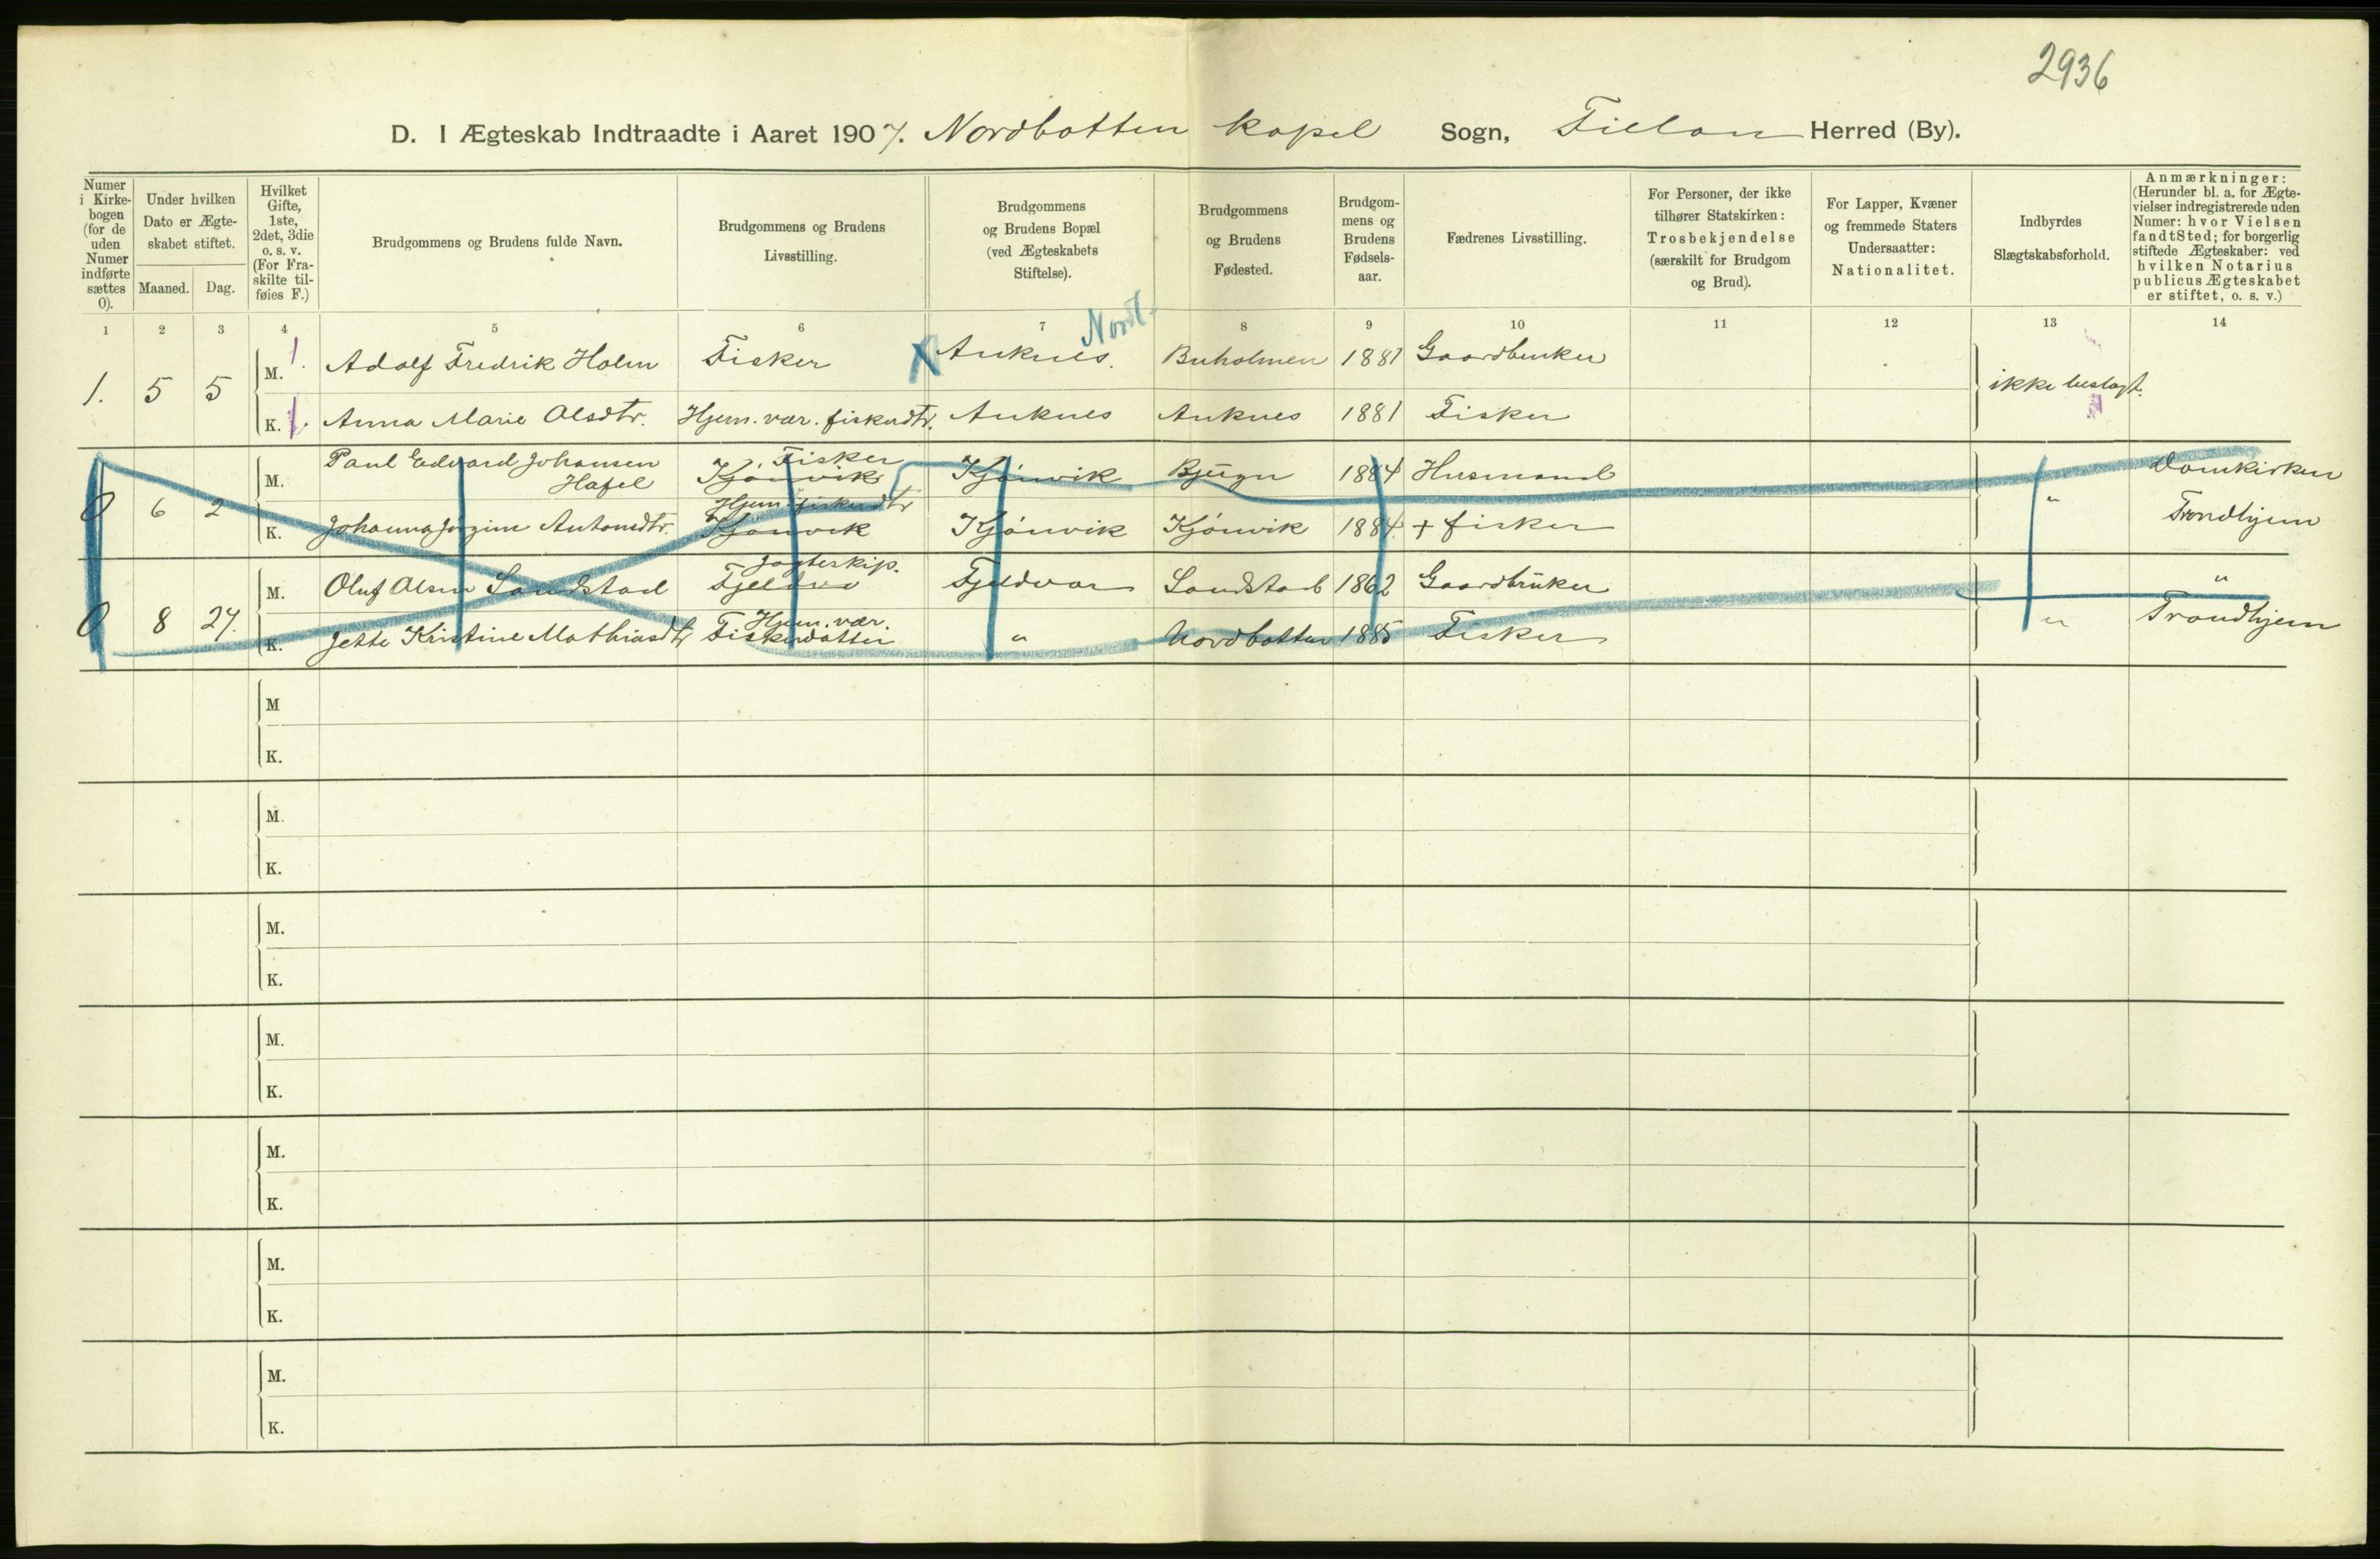 2936
D. I Ægteskab Indtraadte i Aaret 1907. Nordbotten kapel Sogn, Fillan Herred (By).
Numer i Kirkebogen (for de uden Numer indførte sættes 0).
Under hvilken Dato er Ægteskabet stiftet.
Maaned. Dag.
Hvilket Gifte, 1ste, 2det, 3die o. s. v. (For Fraskilte tilføies F.)
Brudgommens og Brudens fulde Navn.
Brudgommens og Brudens Livsstilling.
Brudgommens og Brudens Bopæl (ved Ægteskabets Stiftelse).
Brudgommens og Brudens Fødested.
Brudgommens og Brudens Fødselsaar.
Fædrenes Livsstilling.
For Personer, der ikke tilhører Statskirken: Trosbekjendelse (særskilt for Brudgom og Brud).
For Lapper, Kvæner og fremmede Staters Undersaatter: Nationalitet.
Indbyrdes Slægtskabsforhold.
Anmærkninger: (Herunder bl. a. for Ægtevielser indregistrerede uden Numer: hvor Vielsen fandt Sted; for borgerlig stiftede Ægteskaber: ved hvilken Notarius publicus Ægteskabet er stiftet, o. s. v.)
1 2 3 4 5 6 7 8 9 10 11 12 13 14
Nord-
1. 5 5 M. 1. Adolf Fredrik Holm Fisker X Auknes. Buholmen 1881 Gaardbruker ikke beslægt.
K. 1. Anna Marie Olsdtr. Hjem. vær. fiskerdtr. Auknes Auknes 1881 Fisker
0 6 2 M. Paul Edvard Johansen Hafel Fisker Kjønvik Kjønvik Bjugn 1884 Husmand " Domkirken
K. Johanna Jørgine Antonsdtr. Hjem. fiskerdtr Kjønvik Kjønvik Kjønvik 1884. + fisker Trondhjem
0 8 27. M. Oluf Olsen Sandstad Jagteskip. Fjeldvær Fjeldvær Sandstad 1862 Gaardbruker "
K. Jette Kristine Mathiasdtr Hjem. vær. Fiskerdatter " Nordbotten 1885 Fisker " Trondhjem
M
K.
M.
K.
M.
K.
M.
K.
M.
K.
M.
K.
M.
K.